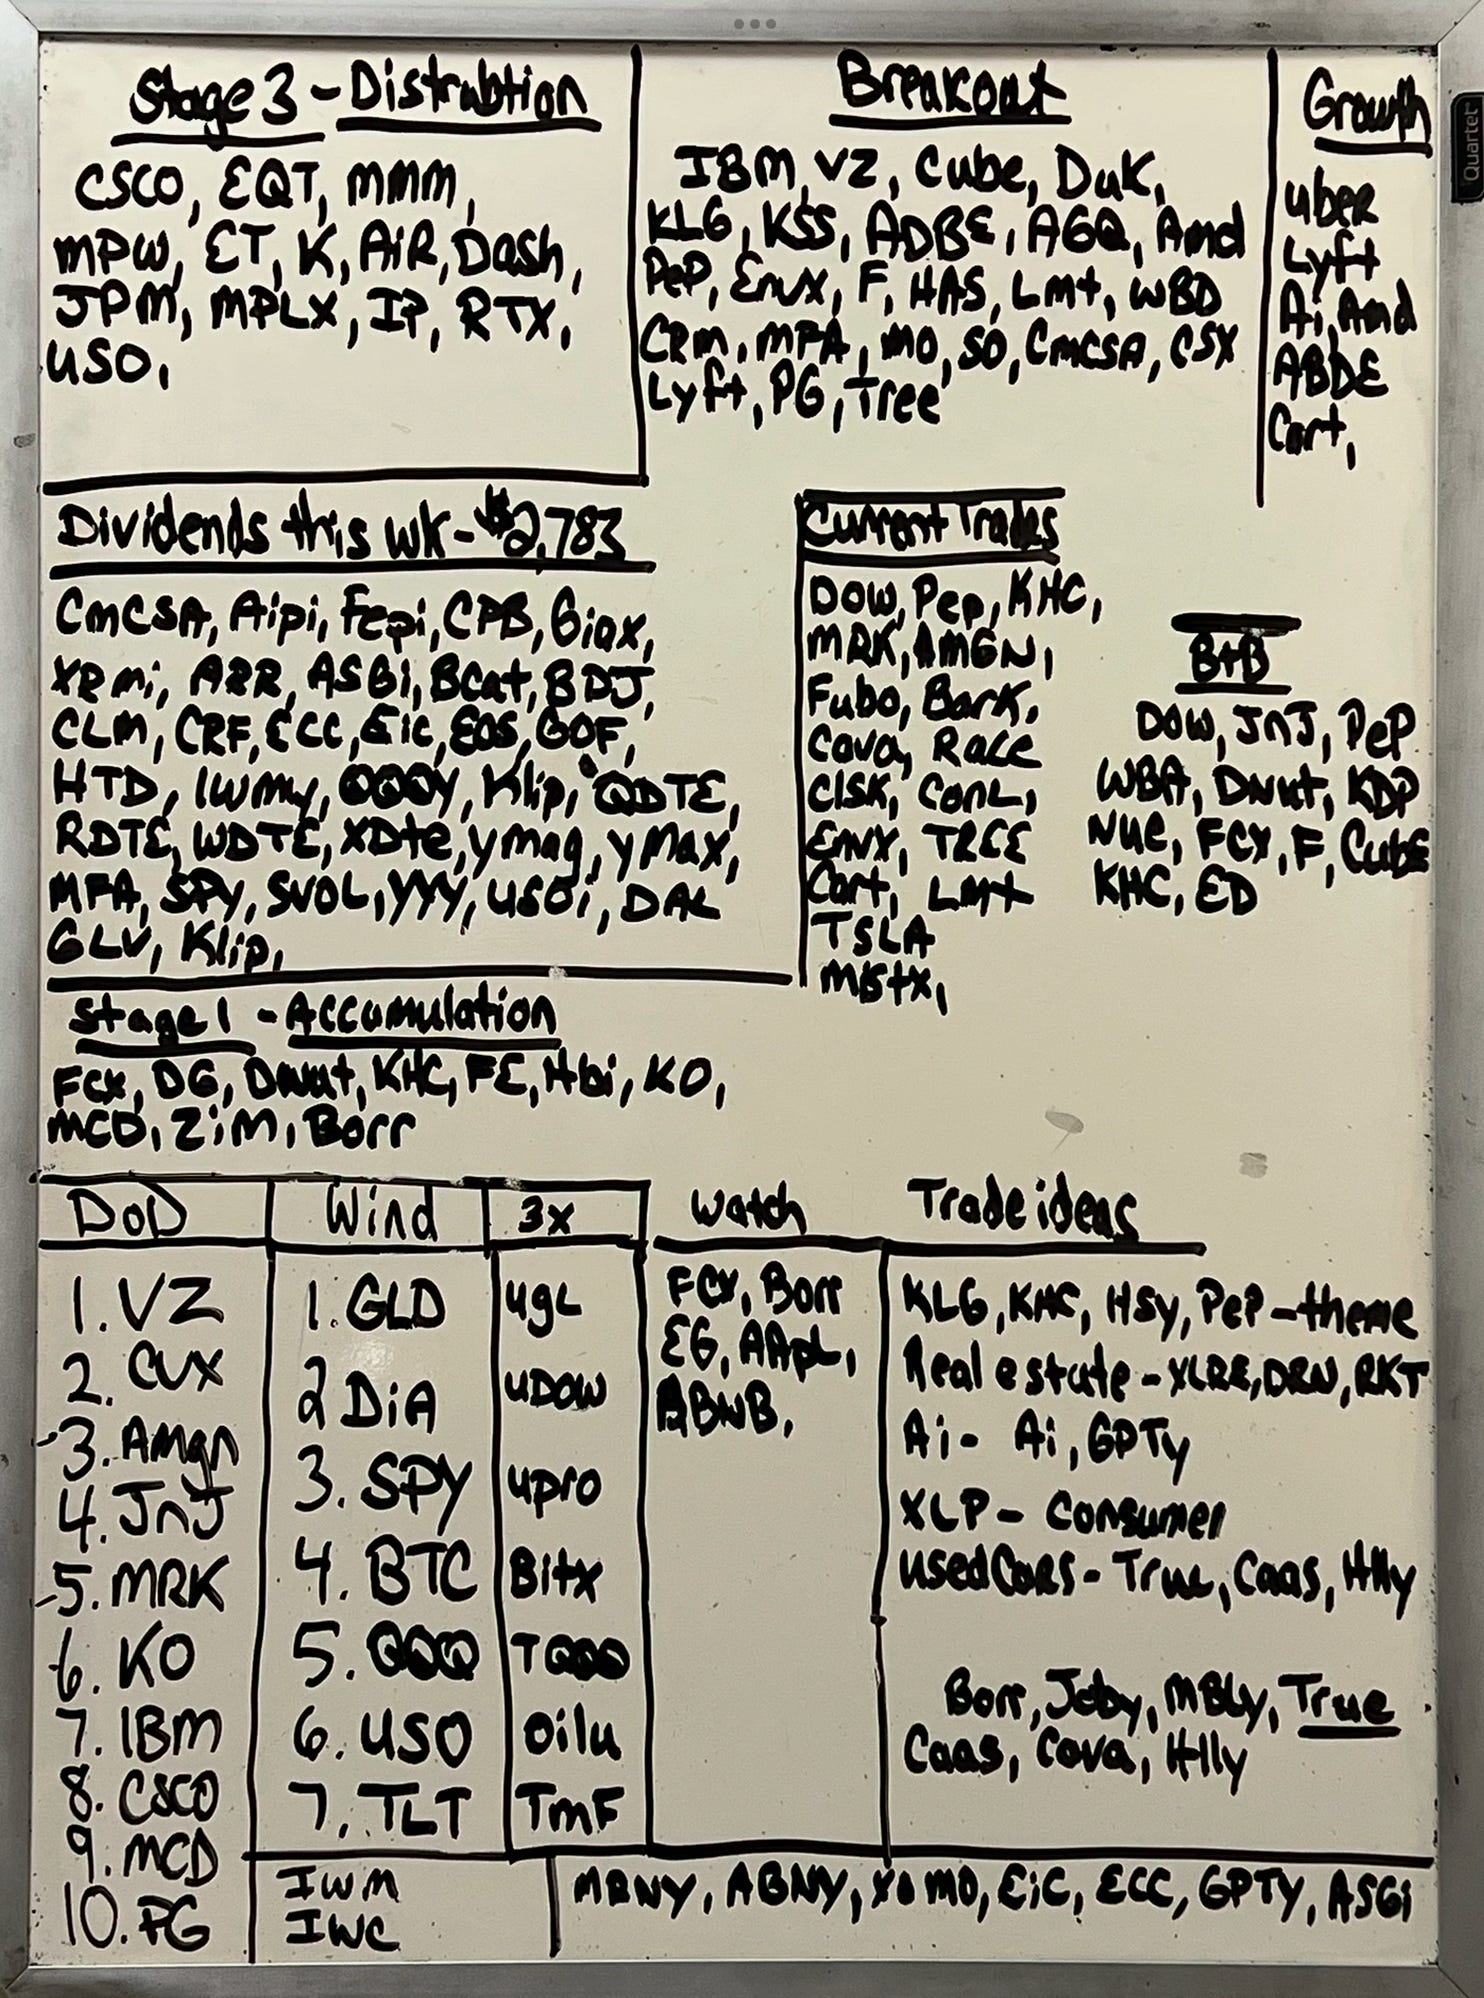 Stage 3 - Distrubtion
CSCO, EQT, mmm,
MPW, ET, K, AiR, Dash,
JPM, MPLX, IP, RTX,
USO,
Breakout
IBM, VZ, Cube, Duk,
KLG, KSS, ADBE, AGQ, Amd
PeP, Envx, F, HAS, Lmt, WBD
CRm, MFA, mo, SO, CmCSA, CSX
Lyft, PG, Tree
Growth
uber
Lyft
Ai, Amd
ABDE
Cart,
Quartet
Dividends this wk - $2,783
CmCSA, Aipi, Fepi, CPB, Giax,
XRmi, ARR, ASGi, Bcat, BDJ,
CLM, CRF, ECC, Eic, EOS, GOF,
HTD, Iwmy, QQQY, Klip, QDTE,
RDTE, WDTE, XDte, ymag, yMax,
MFA, SPy, SVOL, YYY, USOi, DAL
GLV, Klip,
Current Trades
DOW, Pep, KHC,
MRK, AMGN,
Fubo, Bark,
Cova, Race
ClSK, ConL,
Envx, TREE
Cart, Lmt
TSLA
mstx,
B+B
DOW, JnJ, PeP
WBA, Dnut, KDP
Nue, FCX, F, Cube
KHC, ED
Stage 1 - Accumulation
Fcx, DG, Dnut, KHC, FE, Hbi, KO,
MCD, Zim, Borr
DoD
1. VZ
2. CVX
3. Amgn
4. JnJ
5. MRK
6. KO
7. IBM
8. CSCO
9. MCD
10. PG
Wind
1. GLD
2 DiA
3. SPY
4. BTC
5. QQQ
6. USO
7. TLT
IWM
IWC
3x
ugL
uDow
upro
Bitx
TQQQ
oilu
TmF
Watch
FCX, Borr
EG, AApL,
ABNB,
Trade ideas
KLG, KHC, HSy, PeP - theme
Real estate - XLRE, DRN, RKT
Ai - Ai, GPTy
XLP - Consumer
used Cars - True, Caas, Hlly
Borr, Joby, MBLy, True
Caas, Cova, Hlly
MRNY, ABNY, XOMO, EiC, ECC, GPTY, ASGi